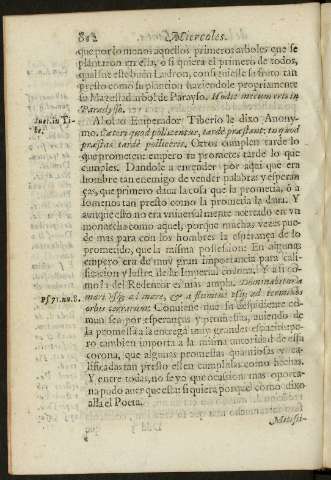 802 Miercoles.
que por lo menos aquellos primeros arboles que se
plantaron en ella, o si quiera el primero de todos,
qual fue este buẽ Ladron, consiguiesse su fruto tan
presto como su plantiõ haciendole propiamente
su Magestad arbol de Parayso. Hodie mecum eris in
Paradysso.
Suet. in Ti-
be.
A lo Emperador Tiberio le dixo Anony-
mo. Cæteri quod pollicentur, tardè præstant; tu quod
præstas tardè polliceris. Otros cumplen tarde lo
que prometen: empero tu prometes tarde lo que
cumples. Dandole a entender por aqui que era
hombre tan enemigo de vender palabras y esperan
ças, que primero daua la cosa que la prometia, ò a
lo menos tan presto como la prometia la daua. Y
aunque esto no era vniuersalmente acertado en vn
monarcha como aquel, porque muchas vezes pue-
de mas para con los hombres la esperança de lo
prometido, que la misma possession. En algunas
empero era de muy gran importancia para cali-
ficacion y lustre de la Imperial corona. Y assi co-
mo la del Redentor es mas ampla. Dominabitur a
Ps. 71. nu. 8.
mari vsq; ad mare, & a flumine vsq; ad terminos
orbis terrarum: Conuiene que su despidiente co-
mun sea por esperanças y promessas, auiendo de
la promessa a la entrega muy grandes espacios: pe-
ro tambien importa a la misma autoridad de esta
corona, que algunas promessas quantiosas y ca-
lificadas tan presto esten cumplidas como hechas.
Y entre todas, no se yo que ocassion mas oportu-
na pudo auer que esta: si quiera porque como dixo
alla el Poeta.
Mitissi-